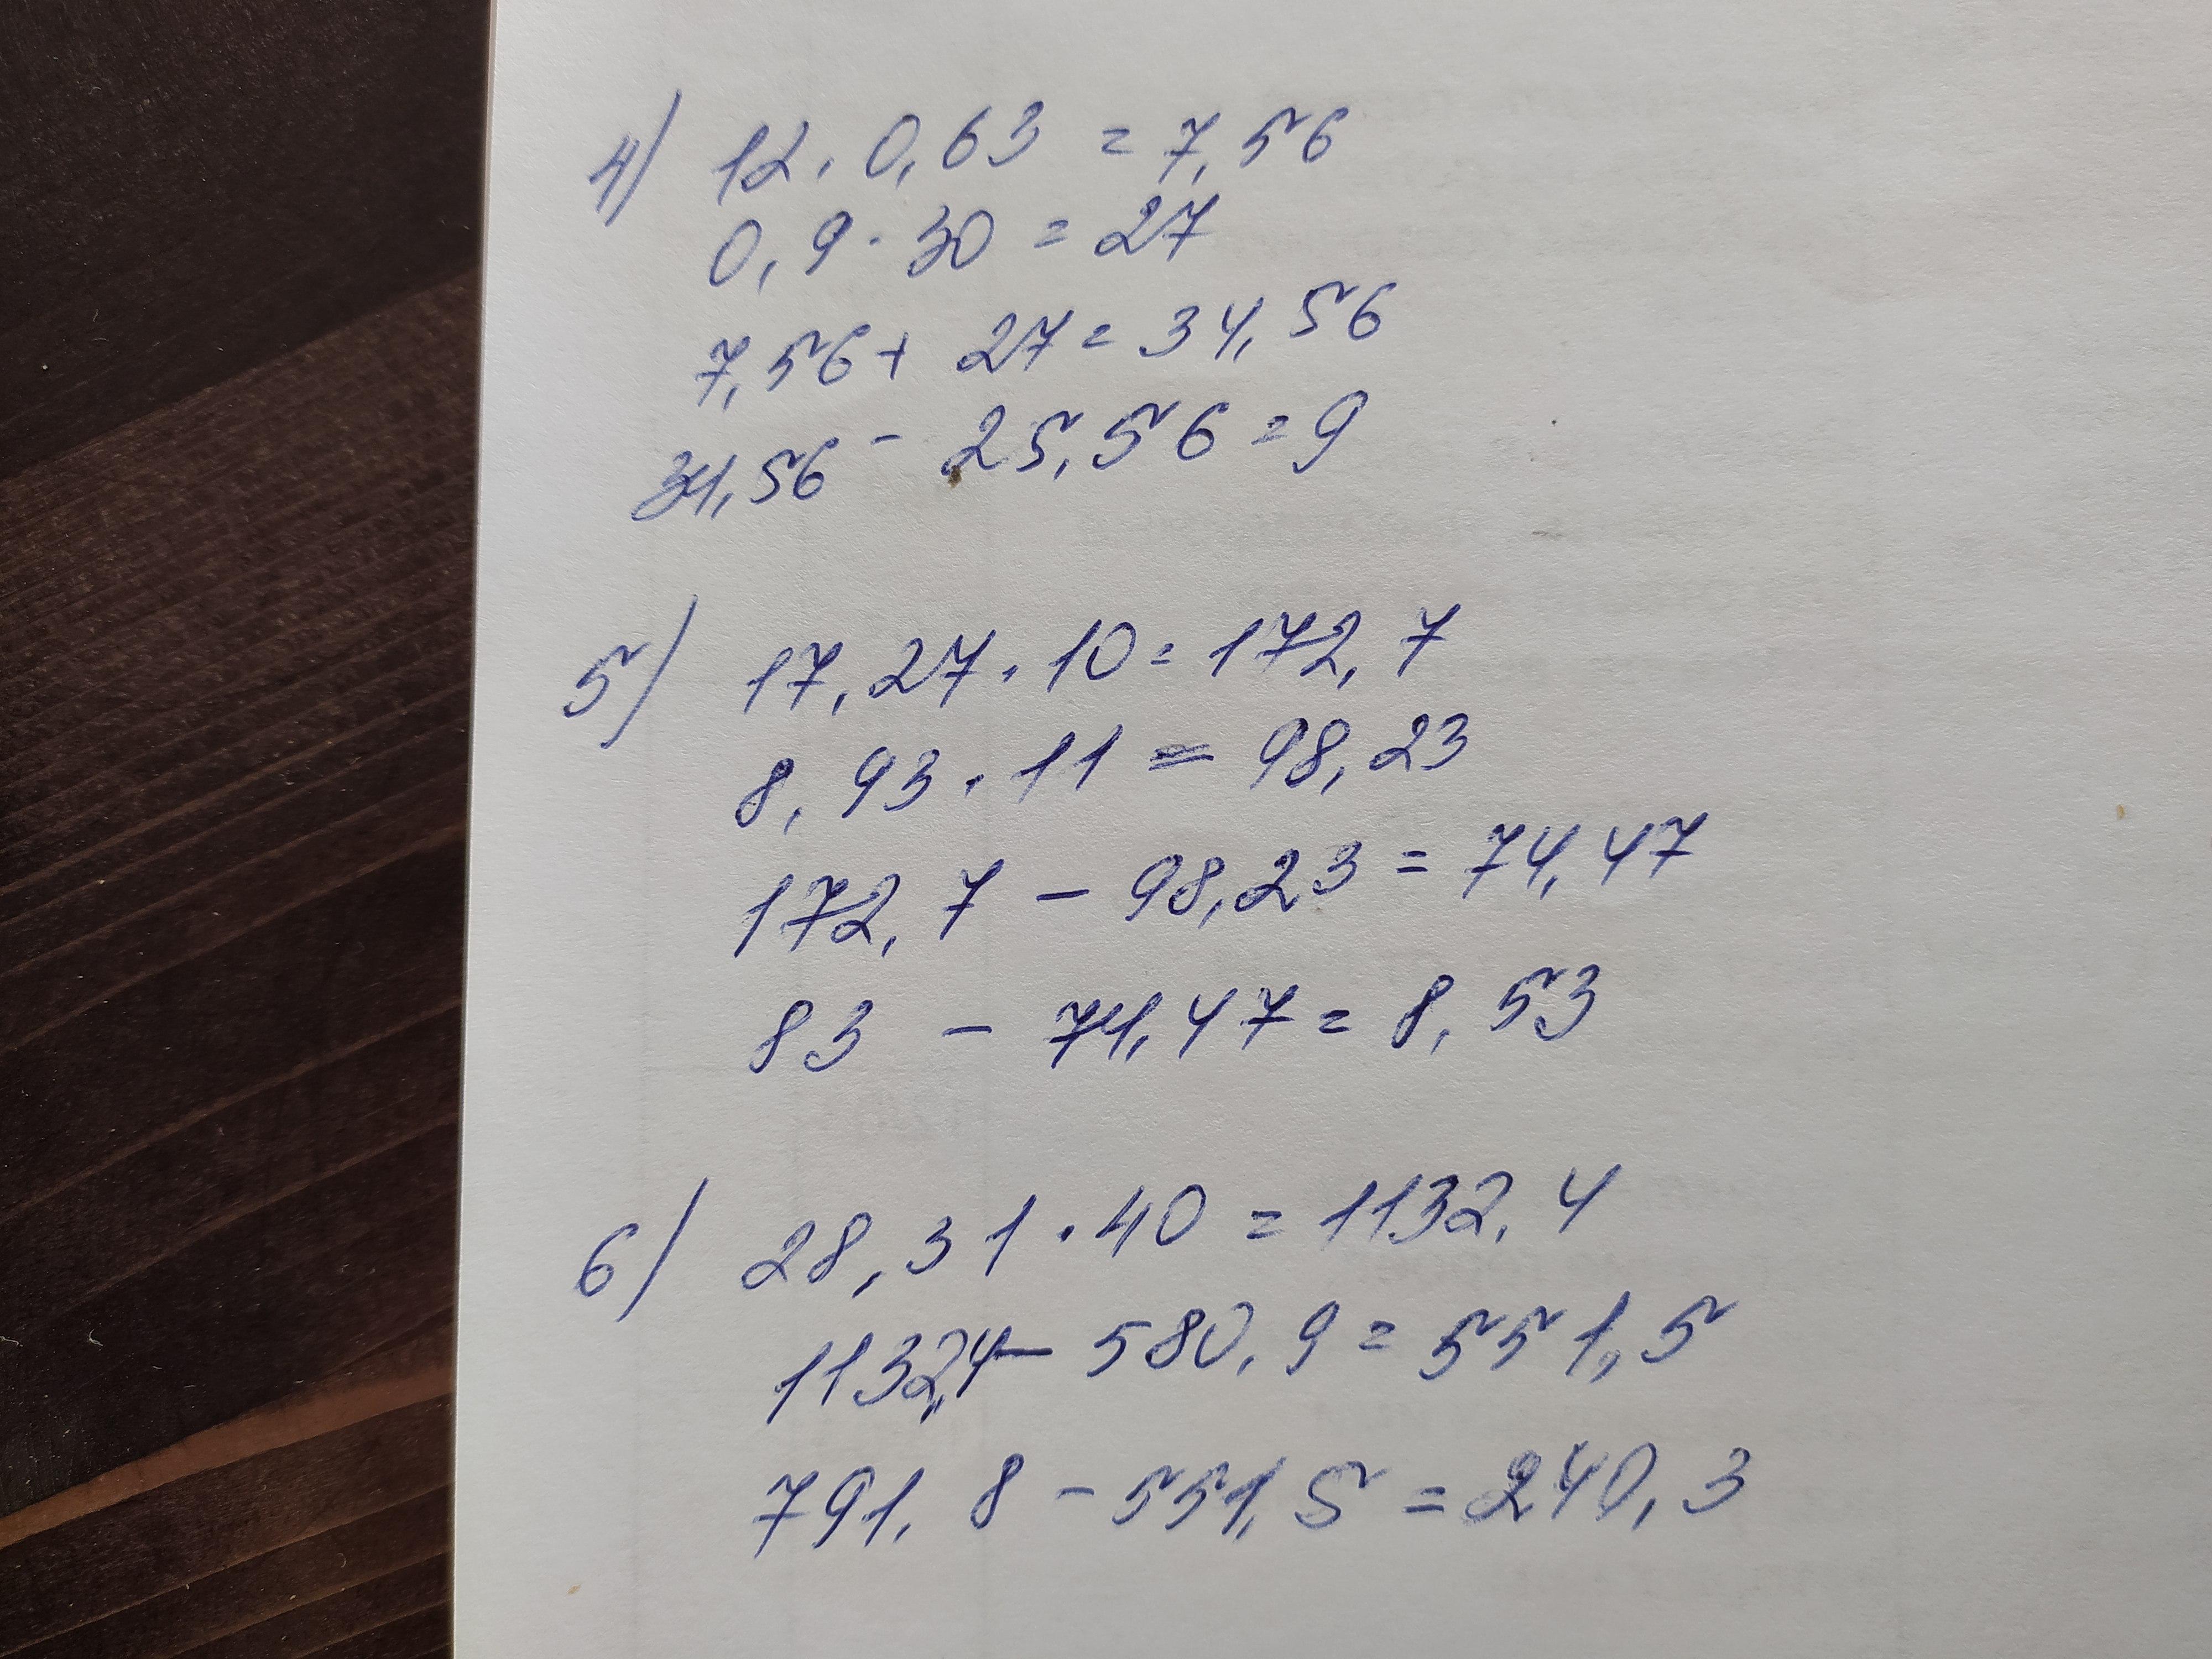 4) 12 . 0,63 = 7,56
0,9 · 30 = 27
7,56 + 27 = 34,56
34,56 - 25,56 = 9
5) 17,27 · 10 = 172,7
8,93 · 11 = 98,23
172,7 - 98,23 = 74,47
83 - 74,47 = 8,53
6) 28,31 · 40 = 1132,4
1132,4 - 580,9 = 551,5
791,8 - 551,5 = 240,3